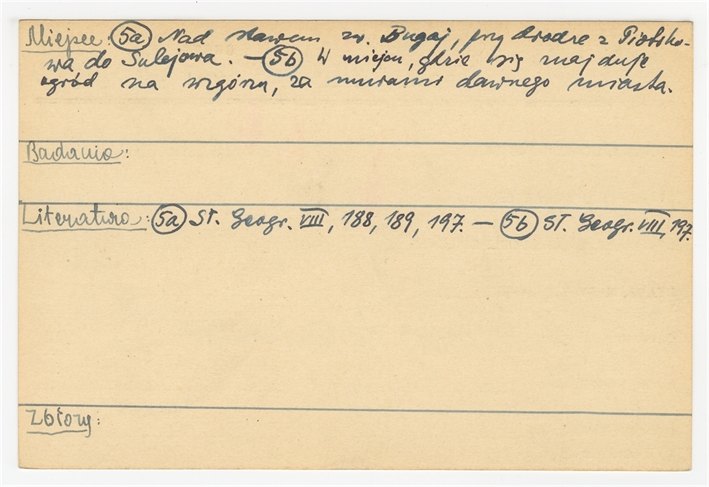 Miejsce: (5a) Nad stawem zw. Bugaj, przy drodze z Piotrko-
wa do Sulejowa. — (5b) W miejscu, gdzie się znajduje
ogród na wzgórzu, za murami dawnego miasta.
Badania:
Literatura: (5a) St. Geogr. VIII, 188, 189, 197. — (5b) St. Geogr. VIII, 197.
Zbiory: